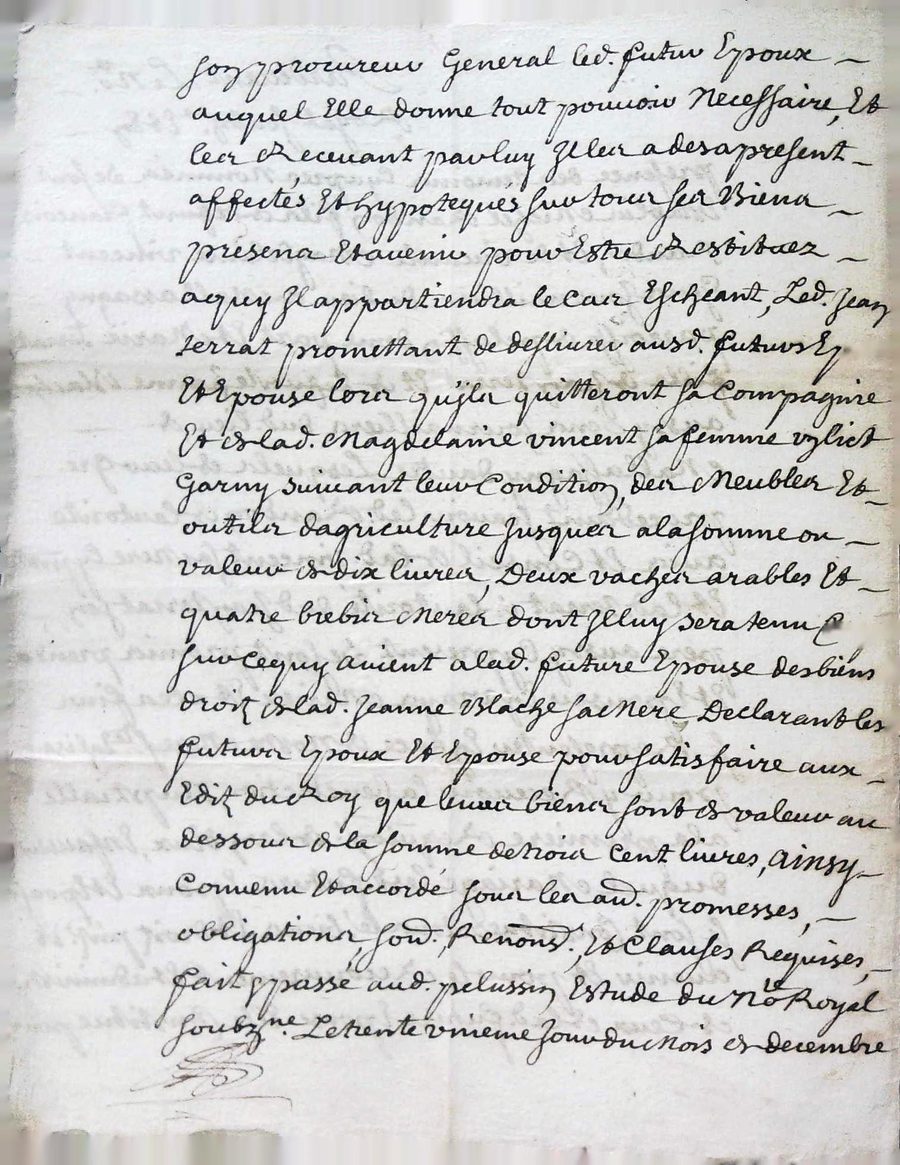 son procureur General led. futur Epoux
auquel Elle donne tout pouvoir Necessaire, Et
les Recevant par luy Il les a des a present
affectés Et hypotequés sur tous ses Biens
presens Et avenir pour Estre Restituez
a quy Il appartiendra le Cas Escheant, Led. Jean
serrat promettant de deslivrer ausd. futurs Ep
Et Epouse lors qu'jls quitteront sa Compagnie
Et de lad. Magdelaine vincent sa femme un lict
Garny suivant leur Condition, des Meubles Et
outils dagriculture Jusques a la somme ou
valeur de dix livres, Deux vaches arables Et
quatre brebis Meres dont Il luy sera tenu
sur ce quy avient a lad. future Epouse des biens
droitz de lad. Jeanne Blache sa Mere Declarant les
futurs Epoux Et Epouse pour satisfaire aux
Editz du Roy que leurs biens sont de valeur au
dessous de la somme de trois Cent livres, ainsy
Convenu Et accordé sous les aud. promesses,
obligations, soud. Renond., Et Clauses Requises,
fait & passé aud. pelussin Estude du Nore Royal
soubz.ne. Le trente vnieme Jour du Mois de decembre